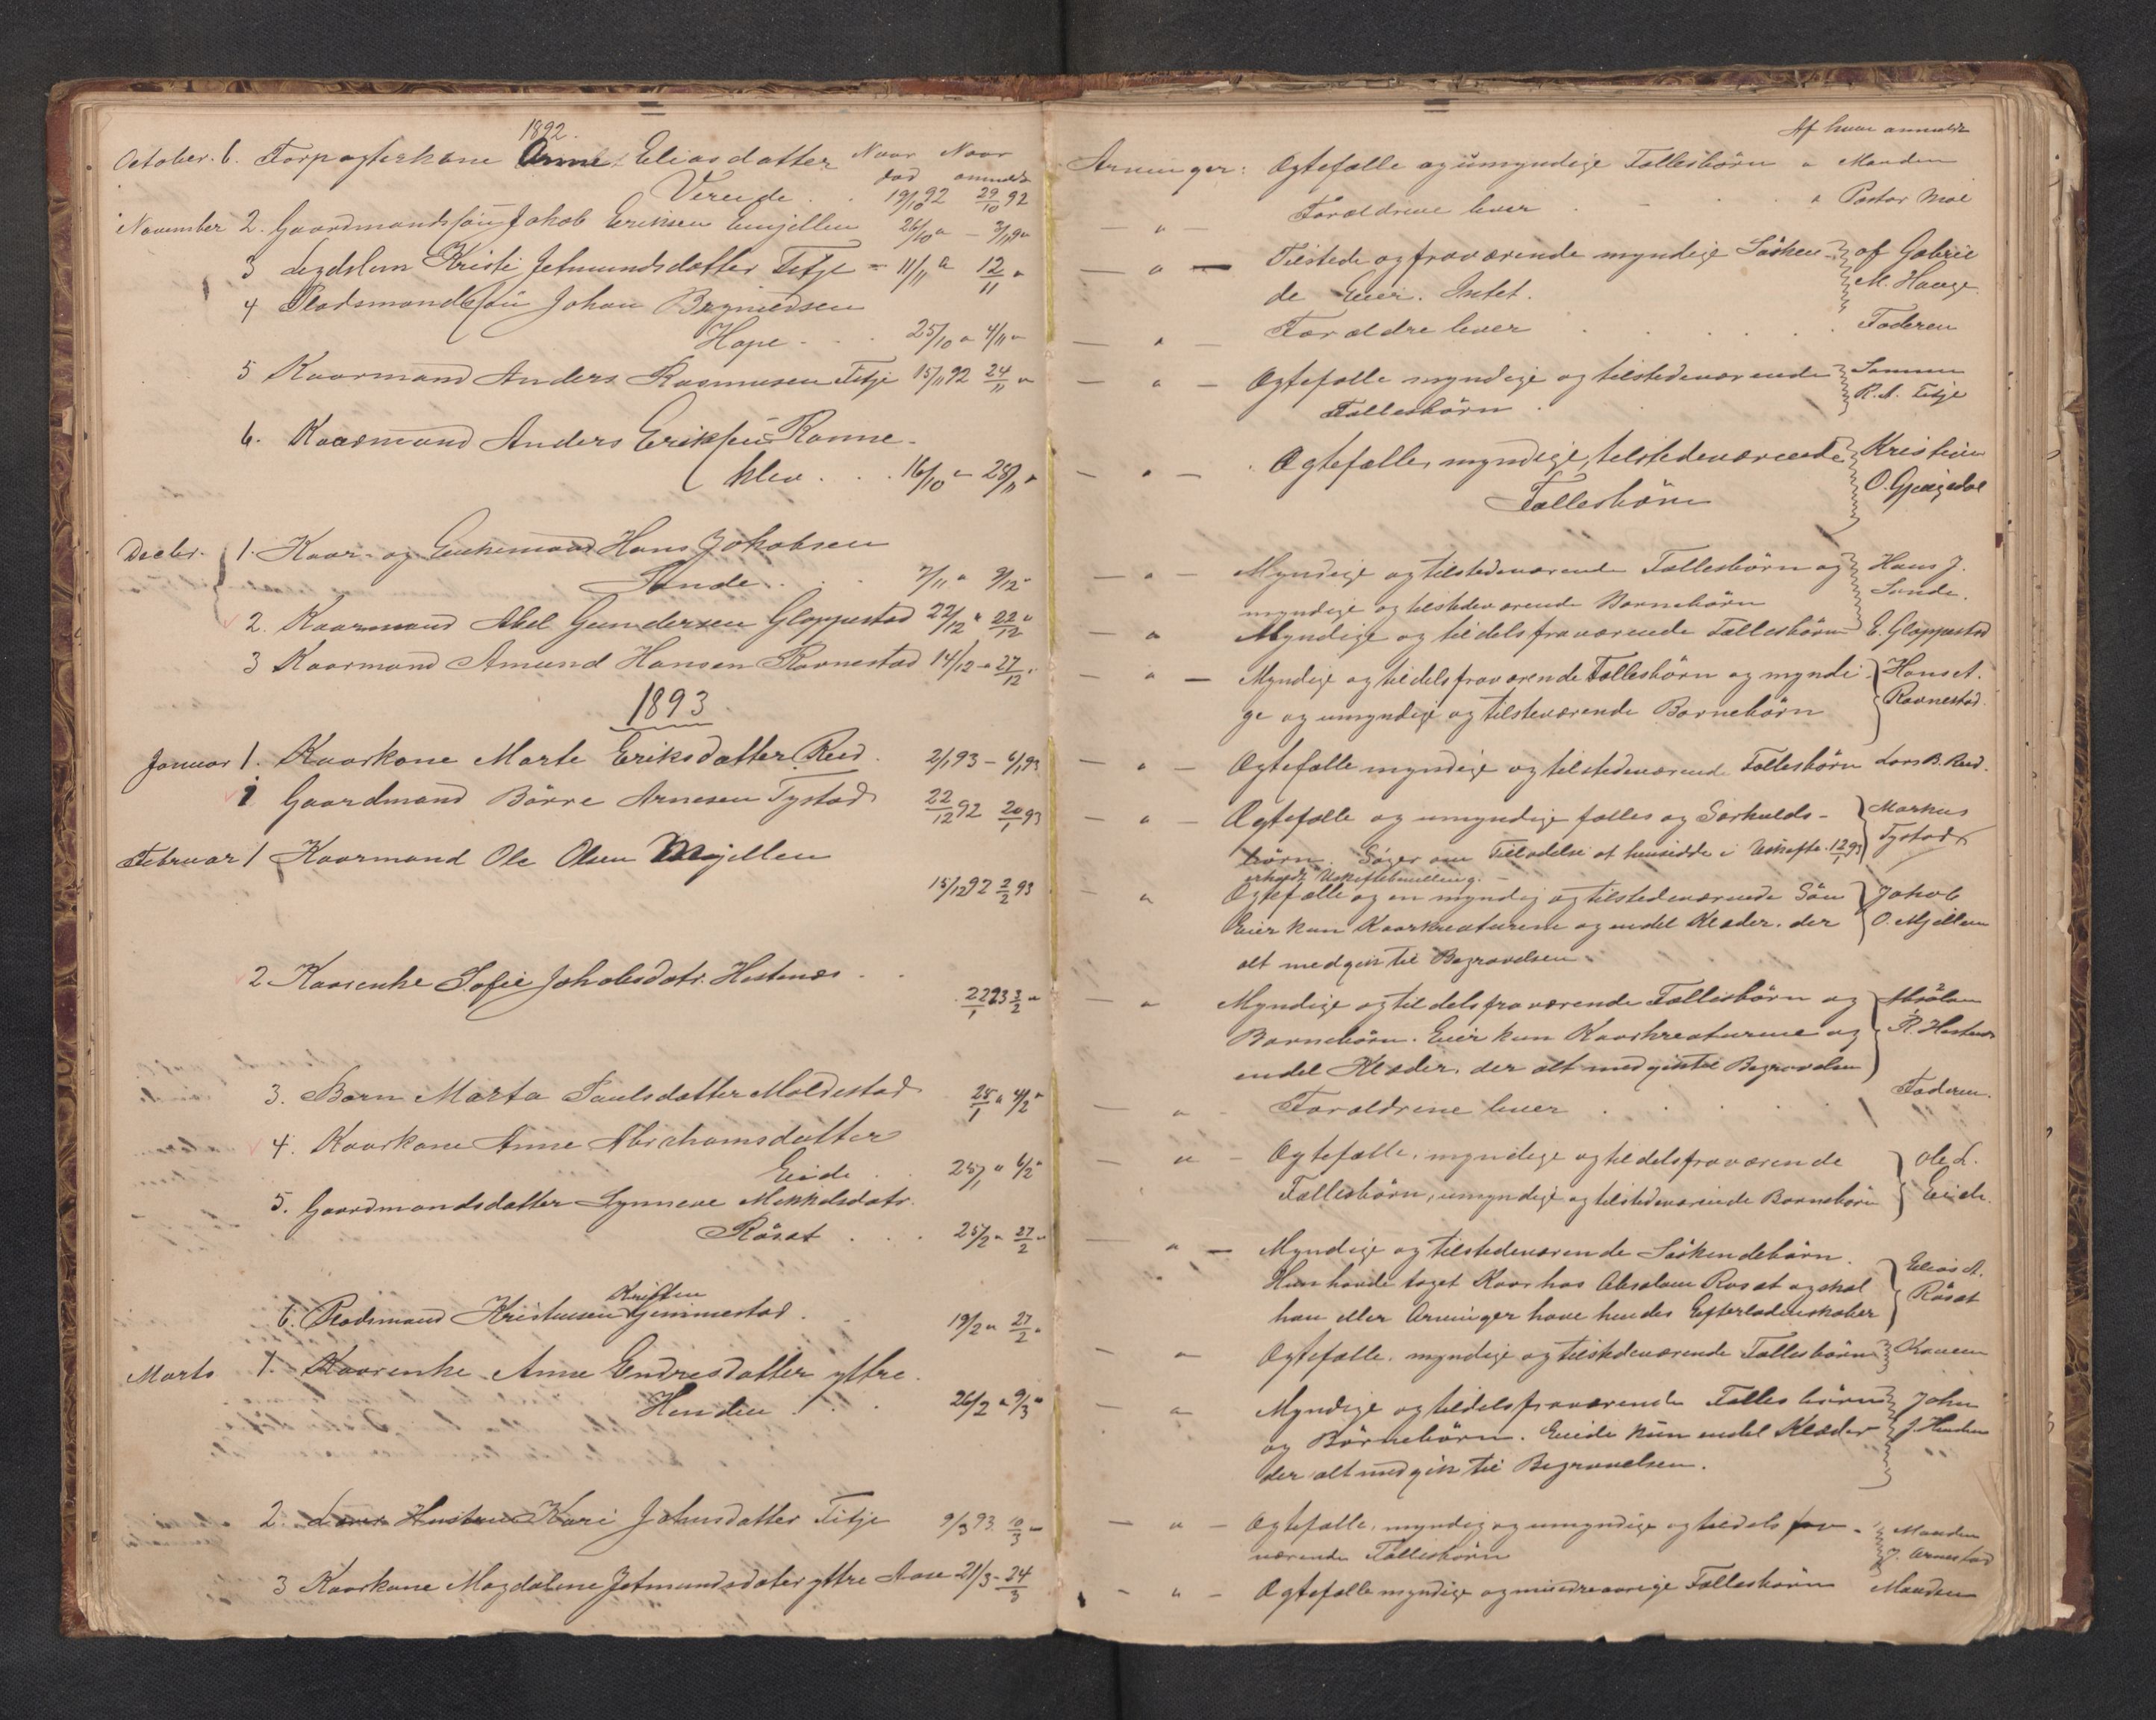 1892.
October. 6. Forpagterkone Anne Eliasdatter Naar Naar
død anmeldt
Vereide . . 19/10 92 29/10 92
November 2. Gaardmandssøn Jakob Eriksen 26/10 " – 3/11 9"
3 Lægdslem Kristi Jetmundsdatter Titje – 11/11 " 12/11 "
4 Pladsmandssøn Johan
Hope . . . 25/10 " 4/11 "
5 Kaarmand Anders Rasmusen Titje 15/11 92 24/11 "
6. Kaarmand Anders Eriksøn Ravne-
klev . . . 16/10 " 28/11 "
Decbr. 1. Kaar- og Enkemand Hans Jakobsen
Sande . . . 7/11 " 9/12 "
2. Kaarmand Abel Gundersen Gloppestad 22/12 " 22/12 "
3 Kaarmand Amund Hansen Ravnestad 14/12 " 27/12 "
1893
Januar 1. Kaarkone Marte Eriksdatter Reed . 2/1 93 – 6/1 93
1 Gaardmand Börre Arnesen Tystad 22/12 92 20/1 93
Februar 1 Kaarmand Ole Olsen Mjellem
15/12 92 2/2 93
2. Kaarenke Sofie Jakobsdatr. Hestenæs . .
22/1 93 3/2 "
3. Barn Marta Paulsdatter Moldestad 28/1 " 4/2 "
4. Kaarkone Anne Abrahamsdatter
Eide . 25/1 " 6/2 "
5. Gaardmandsdatter Synneve Mikkelsdatr.
Röset . . . 25/2 " 27/2 "
Kristen
6. Pladsmand Kristensen Gimmestad . 19/2 " 27/2 "
Marts 1. Kaarenke Anne Endresdatter yttre
Henden . . . 26/2 " 9/3 "
2. Kari Johnsdatter Titje 9/3 93. 10/3 "
3 Kaarkone Magdalene Jetmundsdatter yttre Aase 21/3 – 24/3
Af hvem anmeldt
Arvinger: Ægtefælle og umyndige Fællesbörn " Manden
Forældrene lever . - . . " Pastor Moe
— " — Tilstede og fraværende myndige Sösken- af Gabriel
de Eier. Intet. M. Hauge.
— " — Forældre lever . . . . . Faderen
— " — Ægtefælle myndige og tilstedeværende Sönnen
Fællesbörn . R. A. Titje
— " — Ægtefælle, myndige, tilstedeværende Kristian
Fællesbörn O. Gjengedal
— " — Myndige og tilstedeværende Fællesbörn og Hans J.
myndige og tilstedeværende Barnebörn Sande.
— " Myndige og tildels fraværende Fællesbörn E. Gloppestad
— " — Myndige og tildels fraværende Fællesbörn og myndi- Hans A.
ge og umyndige og tilsteværende Barnebörn Ravnestad.
— " — Ægtefælle myndige og tilstedeværende Fællesbörn Lars B. Reed.
— " — Ægtefælle og umyndige fælles og Særkulds- Markus
börn. Söger om Tilladelse at hensidde i Uskifte. 12/1 93 Tystad
erholdt Uskiftebevilling. –
" Ægtefælle og en myndig og tilstedeværende Sön Jakob
Eier kun Kaarkreaturene og endel Klæder. der O. Mjellem
alt medgik til Begravelsen.
— " Myndige og tildels fraværende Fællesbörn og Absalon
Barnebörn. Eier kun Kaarkreaturene og R. Hestenæs
endel Klæder, der alt medgik til Begravelsen
— " — Forældrene lever . . . . . Faderen.
— " — Ægtefælle, myndige og tildels fraværende Ole L.
Fællesbörn, umyndige og tilstedeværende Barnebörn Eide.
" — Myndige og tilstedeværende Söskendebörn.
Hun havde taget Kaar hos Absalom Röset og skal Elias A.
han eller Arvinger have hendes Efterladenskaber Röset
- " Ægtefælle, myndige og tilstedeværende Fællesbörn Konen
— " Myndige og tildels fraværende Fællesbörn John
og Börnebörn. Eiede kun endel Klæder J. Henden
der alt medgik til Begravelsen.
— " — Ægtefælle, myndig og umyndige og tildels fra- Manden
værende Fællesbörn J. Arnestad
- " — Ægtefælle myndige og mindreaarige Fællesbörn Manden